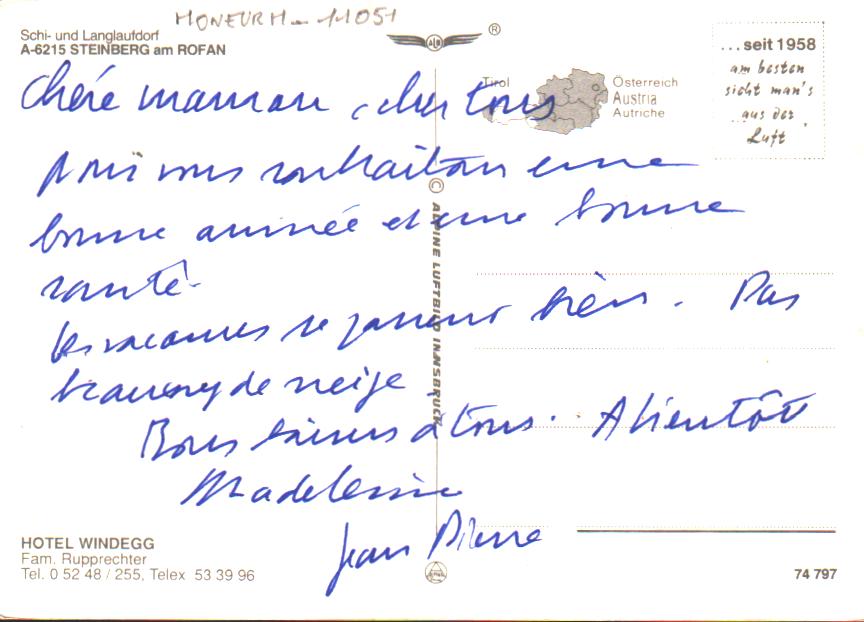 MONEURM - 11051
Schi- und Langlaufdorf
A-6215 STEINBERG am ROFAN
ALB
®
Tirol
Österreich
Austria
Autriche
...seit 1958
am besten
sieht man's
aus der
Luft.
Chére maman, cher tous
Nous vous souhaitons une
bonne année et une bonne
santé.
les vacances se passent bien. Pas
beaucoup de neige
Bons baisers à tous. A bientôt
Madeleine
Jean Pierre
© ALPINE LUFTBILD INNSBRUCK
HOTEL WINDEGG
Fam. Rupprechter
Tel. 0 52 48 / 255, Telex 53 39 96
74 797